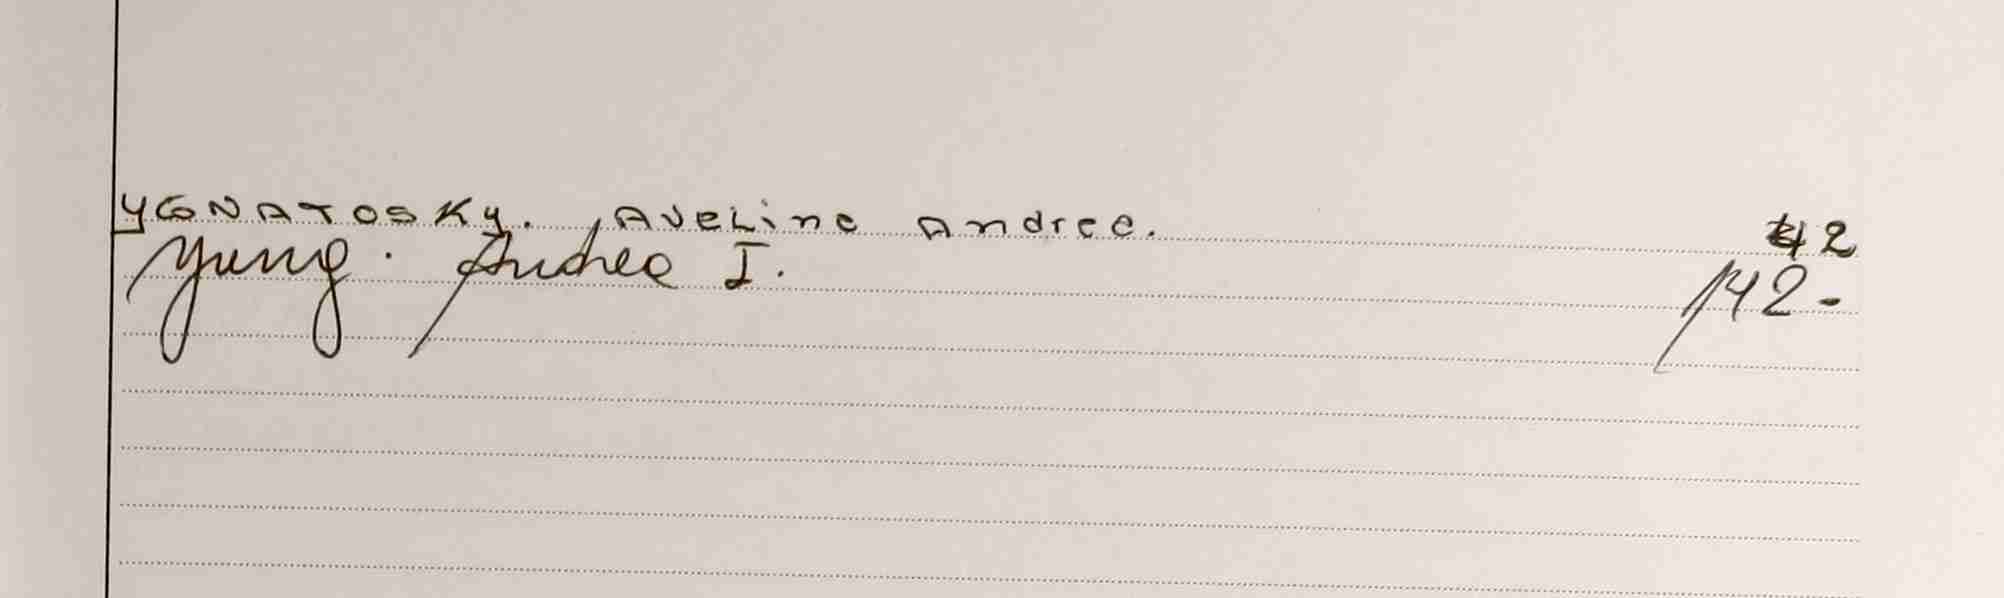 YGNATOSKY. AVELine Andree. 42
Yung. Andrea I. 142-